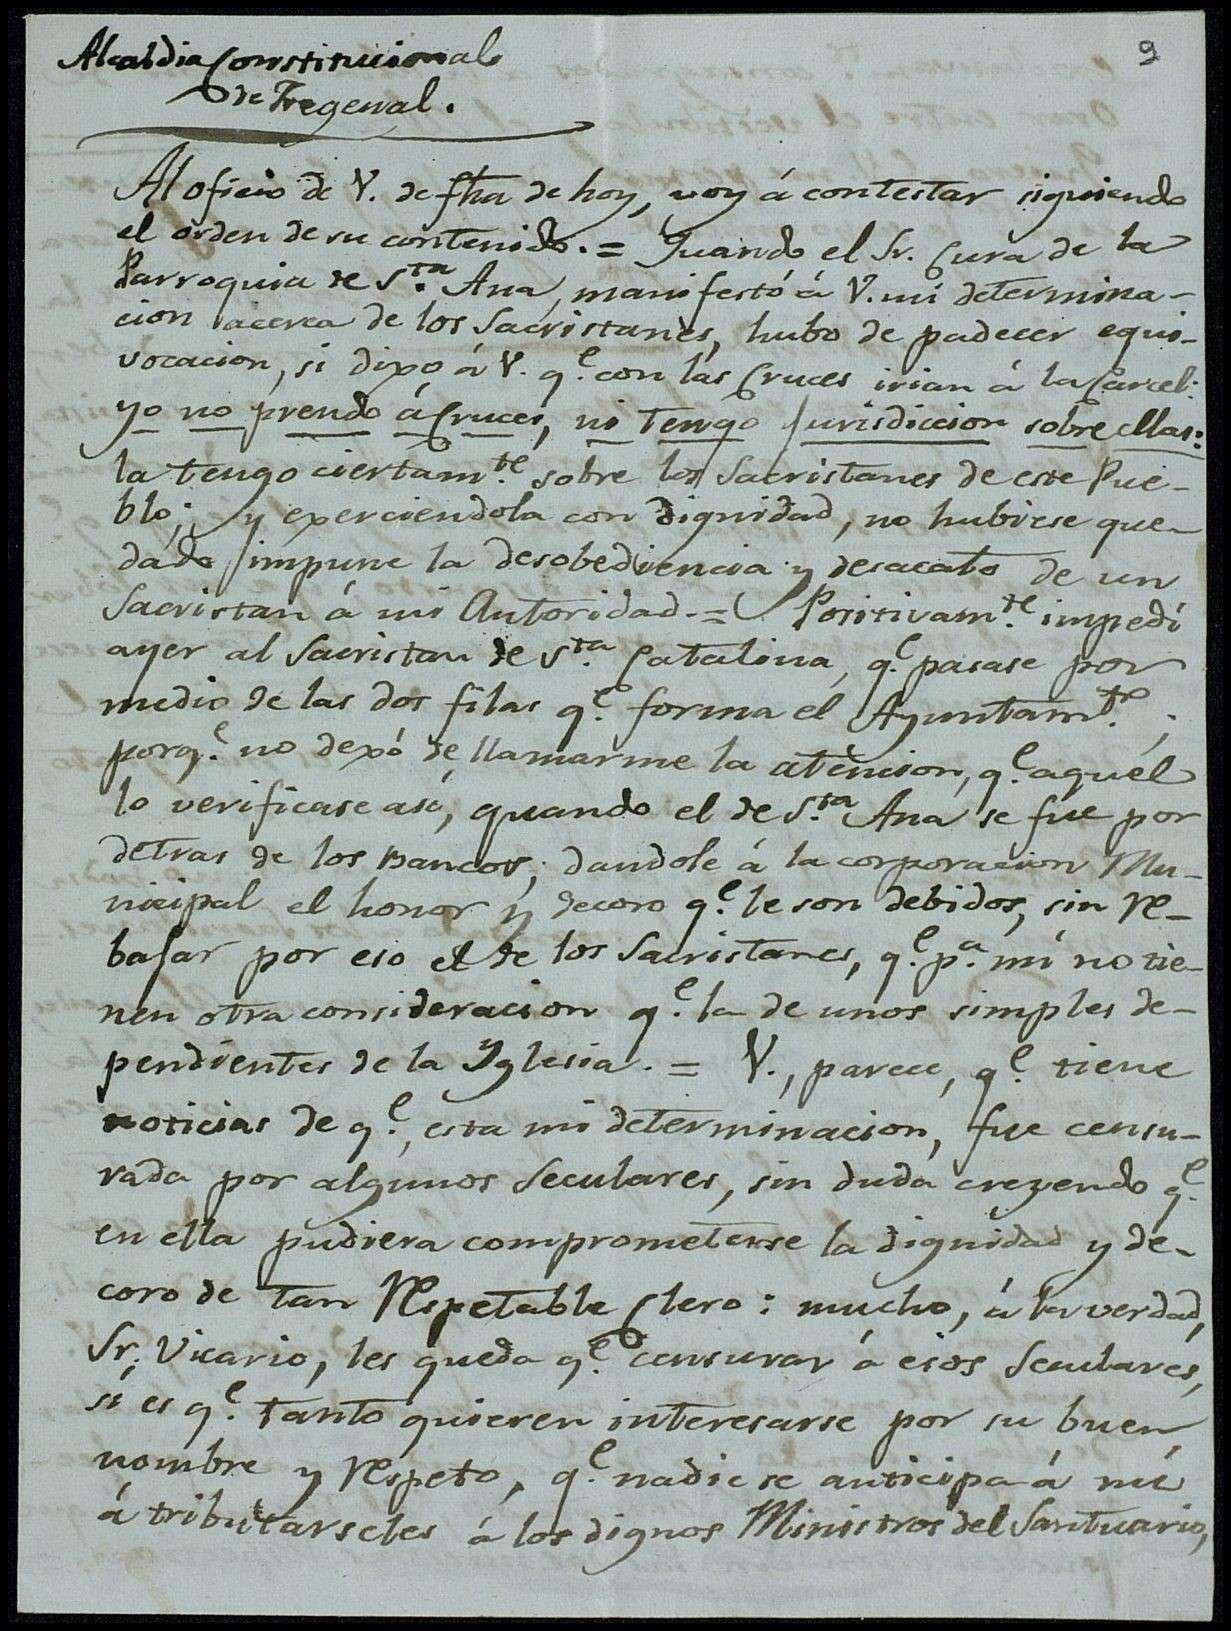 9
Alcaldia Constitucional
de Fregenal.
Al oficio de V. de fha de hoy, voy á contestar siguiendo
el orden de su contenido. = Quando el Sr. Cura de la
Parroquia de S.ta Ana, manifestó á V. mi determina-
cion acerca de los Sacristanes, hubo de padecer equi-
vocacion, si dixo á V. q.e con las Cruces irian á la Carcel:
yo no prendo á Cruces, ni tengo Jurisdiccion sobre ellas:
la tengo ciertam.te sobre los Sacristanes de este Pue-
blo; y exerciendola con dignidad, no hubiese que-
dado impune la desobediencia y desacato de un
Sacristan á mi Autoridad. = Positivam.te impedí
ayer al Sacristan de S.ta Catalina, q.e pasase por
medio de las dos filas q.e forma el Ayuntam.to;
porq.e no dexó de llamarme la atencion, q.e aquel
lo verificase asi, quando el de S.ta Ana se fue por
detras de los Bancos, dandole á la corporacion Mu-
nicipal el honor y decoro q.e le son debidos, sin re-
bajar por eso el de los Sacristanes, q.e p.a mí no tie-
nen otra consideracion q.e la de unos simples de-
pendientes de la Yglesia. = V., parece, q.e tiene
noticias de q.e, esta mi determinacion, fue censu-
rada por algunos Seculares, sin duda creyendo q.e
en ella pudiera comprometerse la dignidad y de-
coro de tan Respetable Clero: mucho, á la verdad,
Sr. Vicario, les queda q.e censurar á esos Seculares,
si es q.e tanto quieren interesarse por su buen
nombre y Respeto, q.e nadie se anticipa á mí
á tributarseles á los dignos Ministros del Santuario,